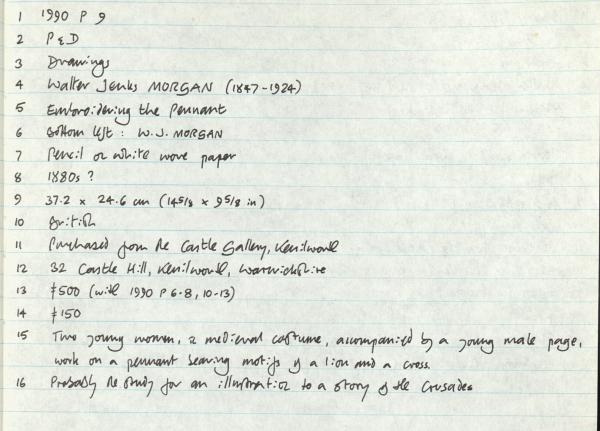 1 1990 P 9
2 P & D
3 Drawings
4 Walter Jenks MORGAN (1847-1924)
5 Embroidering the Pennant
6 Bottom left : W.J. MORGAN
7 Pencil on white wove paper
8 1880s ?
9 37.2 x 24.6 cm (14 5/8 x 9 5/8 in)
10 British
11 Purchased from the Castle Gallery, Kenilworth
12 32 Castle Hill, Kenilworth, Warwickshire
13 £500 (with 1990 P 6-8, 10-13)
14 £150
15 Two young women, in medieval costume, accompanied by a young male page,
work on a pennant bearing motifs of a lion and a cross.
16 Probably the study for an illustration to a story of the Crusades